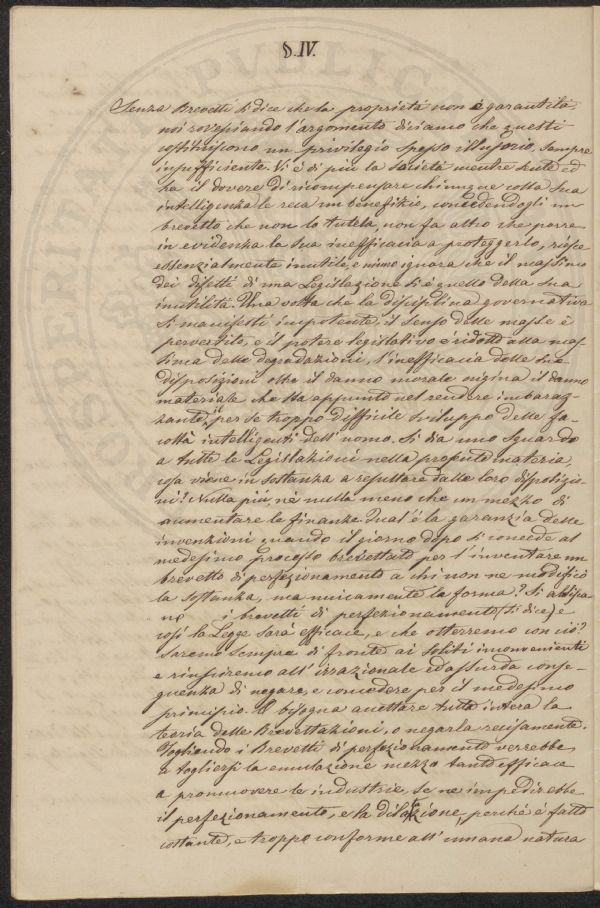 §. IV.
Senza Brevetti si dice che la proprietà non è garantita
noi rovesciando l'argomento diciamo che questi
costituiscono un privilegio spesso illusorio, sempre
insufficiente. Vi è di più la Società mentre sente ed
ha il dovere di ricompensare chiunque colla sua
intelligenza le reca un benefizio, concedendogli un
brevetto che non lo tutela, non fa altro che porre
in evidenza la sua inefficacia a proteggerlo,
essenzialmente inutile, e niuno ignora che il massimo
dei difetti di una Legislazione si è quello della sua
inutilità. Una volta che la disciplina governativa
si manifesti impotente, il senso delle masse è
pervertito, e il potere legislativo è ridotto alla mas-
sima delle degradazioni, l'inefficacia delle sue
disposizioni oltre il danno morale origina il danno
materiale che sta appunto nel rendere imbaraz-
zante, il per se troppo difficile sviluppo delle fa-
coltà intelligenti dell'uomo. Si dia uno sguardo
a tutte le Legislazioni nella presente materia,
cosa viene in sostanza a resultare dalle loro disposizio-
ni? Nulla più, nè nulla meno che un mezzo di
aumentare le finanze. Qual'é la garanzia delle
invenzioni quando il giorno dopo si concede al
medesimo processo brevettato per l'inventare un
brevetto di perfezionamento a chi non ne modificò
la sostanza, ma unicamente la forma? Si aboliscano
i brevetti di perfezionamento (si dice) e
così la Legge sarà efficace, e che otterremo con ciò?
Saremo sempre di fronte ai soliti inconvenienti
e riusciremo all'irrazionale ed assurda conse-
guenza di negare, e concedere per il medesimo
principio. O bisogna accettare tutta intera la
teoria delle Brevettazioni, o negarla recisamente.
Togliendo i Brevetti di perfezionamento verrebbe
a togliersi la emulazione mezzo tanto efficace
a promuovere le industrie, se ne impedirebbe
il perfezionamento, e la dilatazione, perchè è fatto
costante, e troppo conforme all'umana natura